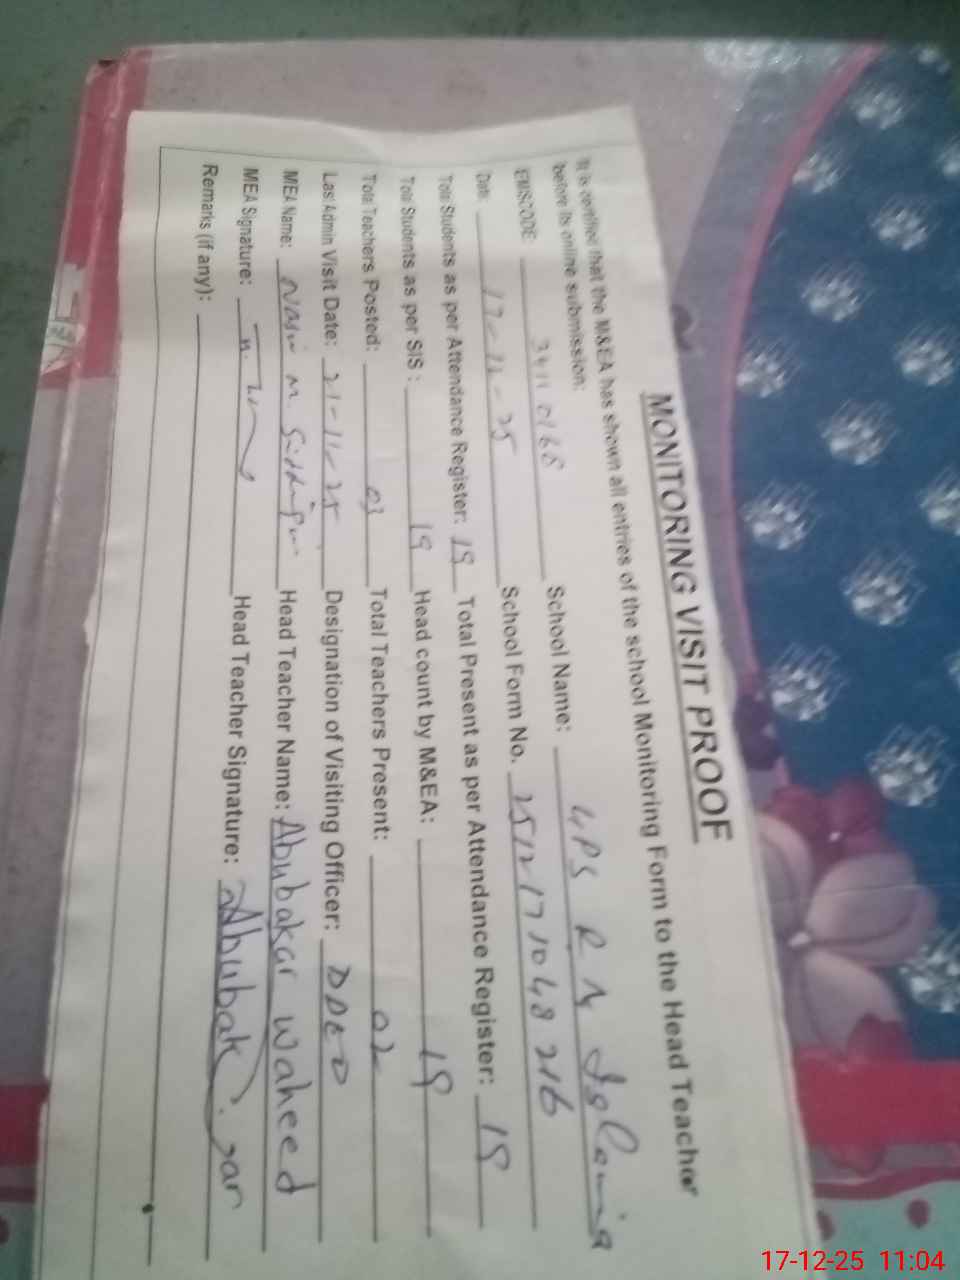 MONITORING VISIT PROOF
It is certified that the M&EA has shown all entries of the school Monitoring Form to the Head Teacher
before its online submission:
EMISCODE: School Name: GPS R N Islamia
Date: 17-11-25 School Form No. 2512171048216
Total Students as per Attendance Register: 19 Total Present as per Attendance Register: 19
Total Students as per SIS : 19 Head count by M&EA: 19
Total Teachers Posted: 03 Total Teachers Present: 02
Last Admin Visit Date: 21-11-25 Designation of Visiting Officer: DDEO
MEA Name: Head Teacher Name: Abubakar waheed
MEA Signature: Head Teacher Signature: Abubakar
Remarks (if any):
17-12-25 11:04